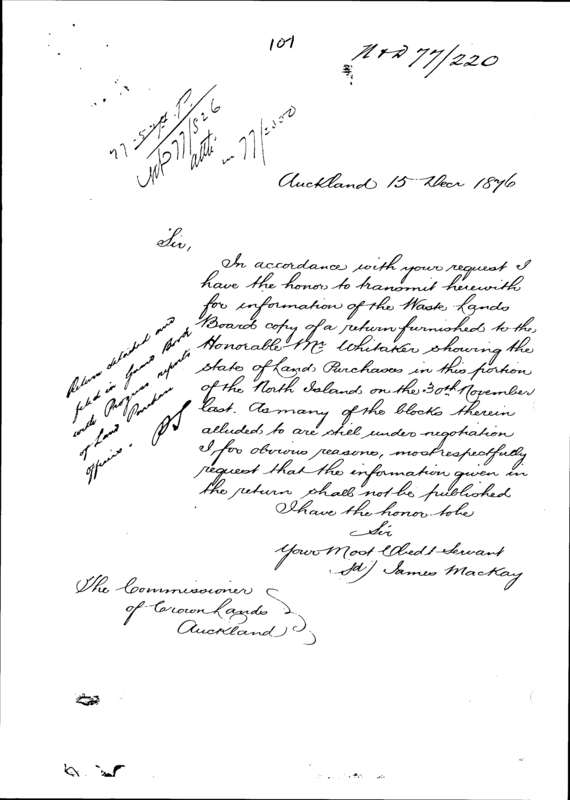 101
N & D 77/220
NLP 77/526
atte.
in 77/
Auckland 15 Decr 1876
Sir,
In accordance with your request I
have the honor to transmit herewith
for information of the Waste Lands
Board copy of a return furnished to the
Honorable Mr Whitaker showing the
state of Land Purchases in this portion
of the North Island on the 30th November
last. As many of the blocks therein
alluded to are still under negotiation
I, for obvious reasons, most respectfully
request that the information given in
the return shall not be published
I have the honor to be
Sir
Your Most Obedt Servant
Sd) James Mackay
The Commissioner
of Crown Lands
Auckland
Return detached and
filed in Guard Book
with Progress reports
of Land Purchase
Officers.